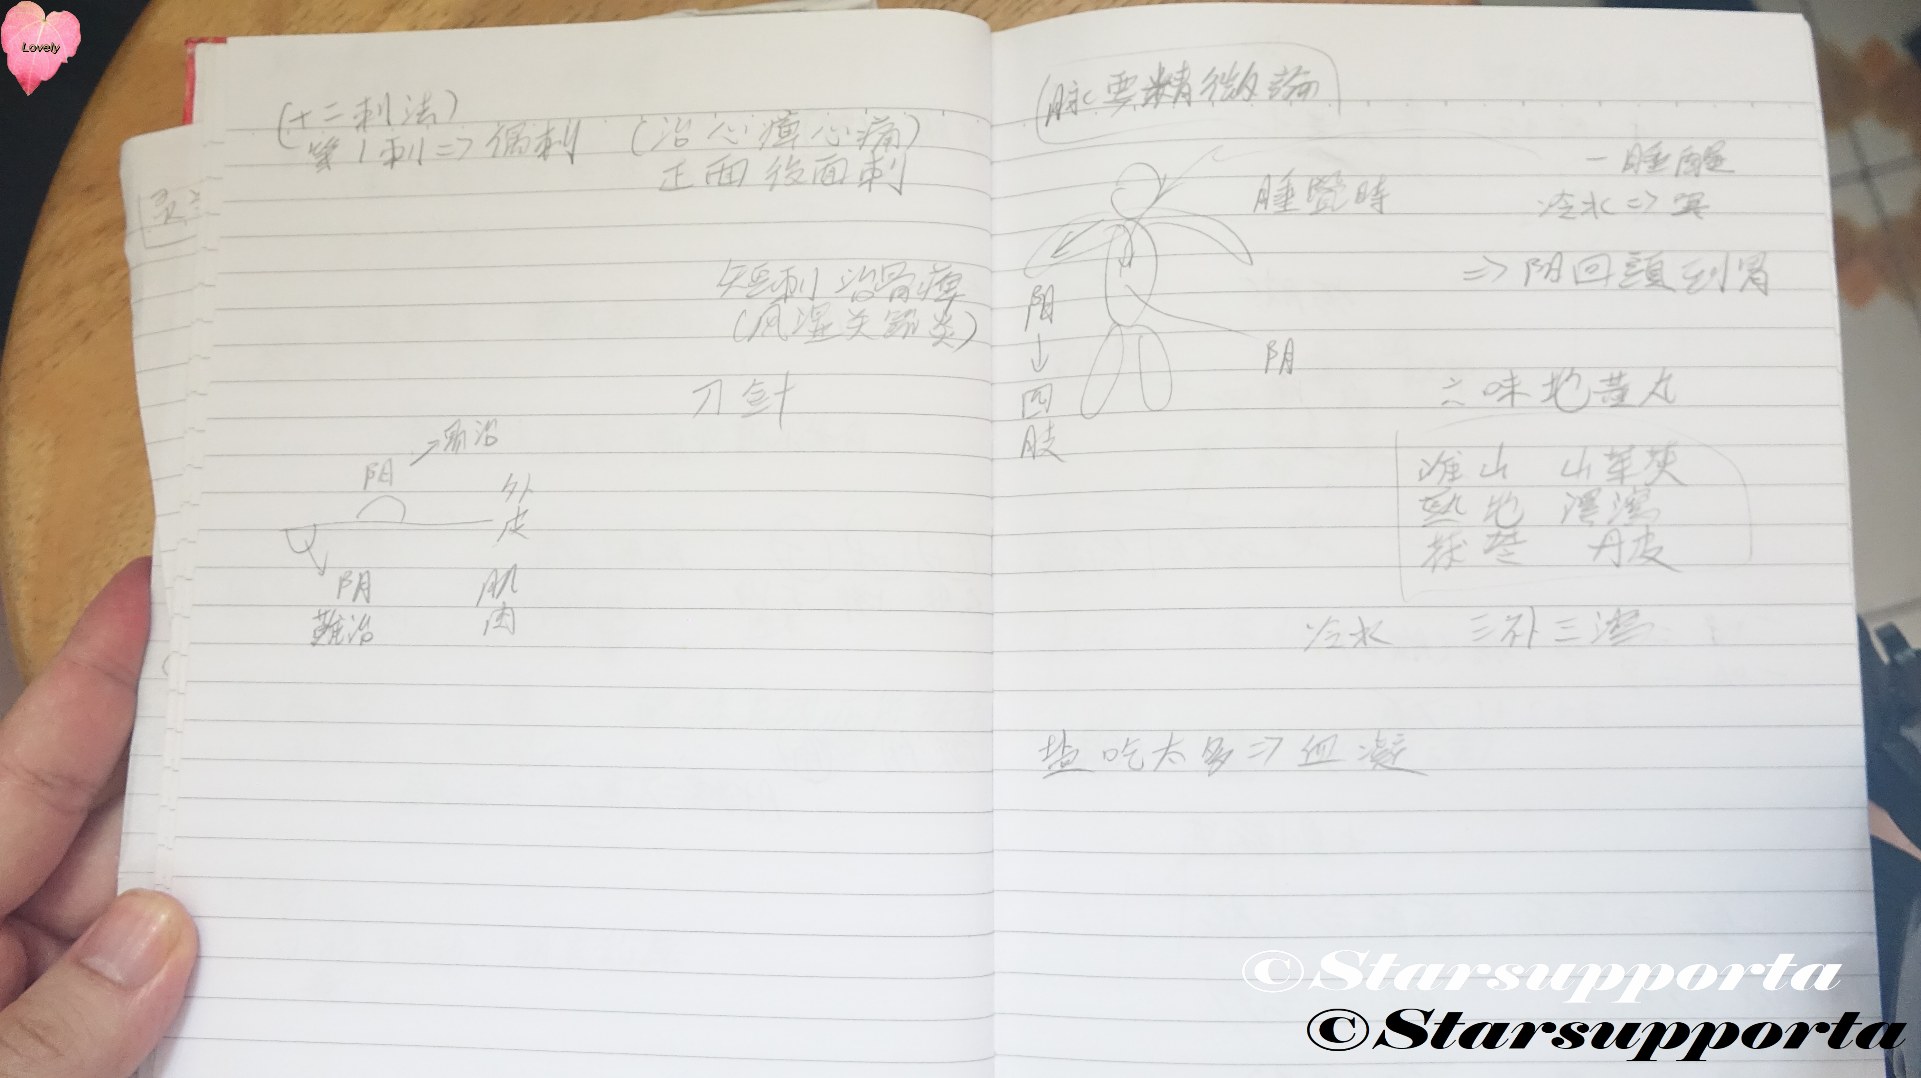 Lovely
(十二刺法)
第1刺=>偶刺 (治心痺心痛)
正面後面刺
短刺 治骨痺
(风湿关節炎)
刀針
易治
阳
外
皮
阴
難治
肌
肉
脉要精微論
睡覺時
一睡醒
冷水=>
=>阴回頭到胃
阳
↓
四
肢
阴
六味地黄丸
淮山 山茱萸
熟地 澤瀉
茯苓 丹皮
冷水 三补三瀉
盐吃太多=>血凝
©Starsupporta
©Starsupporta